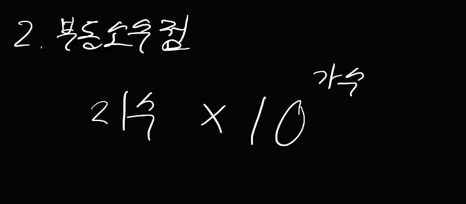 2. 부동소수점
지수 × 10^가수